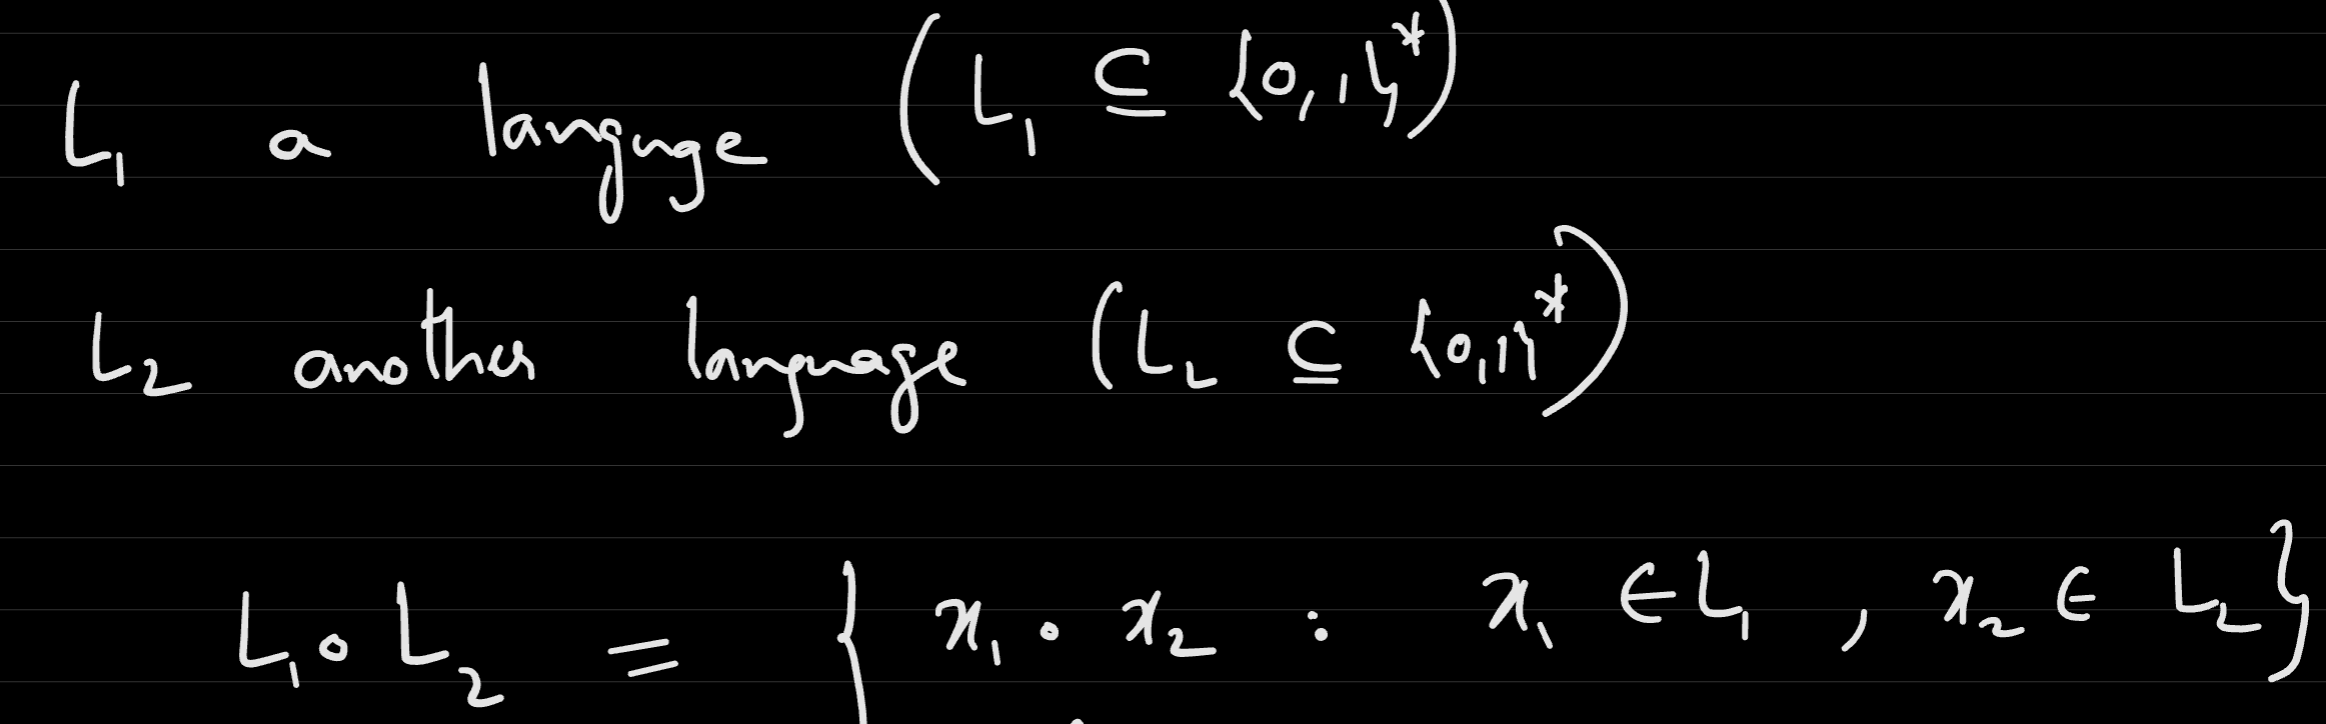 L₁ a languge (L₁ ⊆ {0,1}*)
L₂ another language (L₂ ⊆ {0,1}*)
L₁∘L₂ = { x₁∘x₂ : x₁ ∈ L₁ , x₂ ∈ L₂}